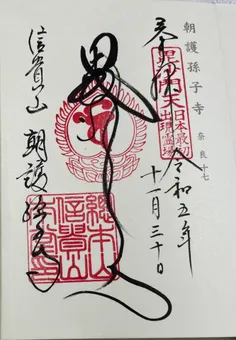 朝護孫子寺 奈良十七
奉拝
毘沙門天
日本最初
出現霊場
令和五年
十一月三十日
信貴山 朝護孫子寺
総本山
信貴山